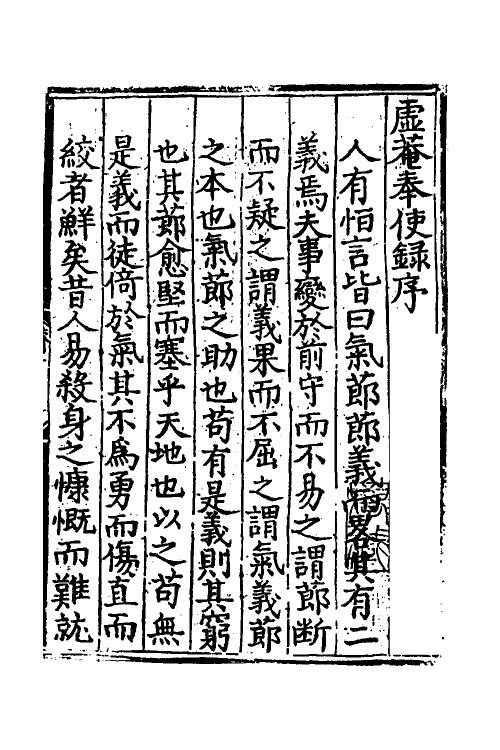 虛菴奉使錄序
人有恒言皆曰氣節節義而畧其有二
義焉夫事變於前守而不易之謂節断
而不疑之謂義果而不屈之謂氣義節
之本也氣節之助也苟有是義則其窮
也其節愈堅而塞乎天地也以之苟無
是義而徒倚於氣其不為勇而傷直而
絞者鮮矣昔人易殺身之慷慨而難就